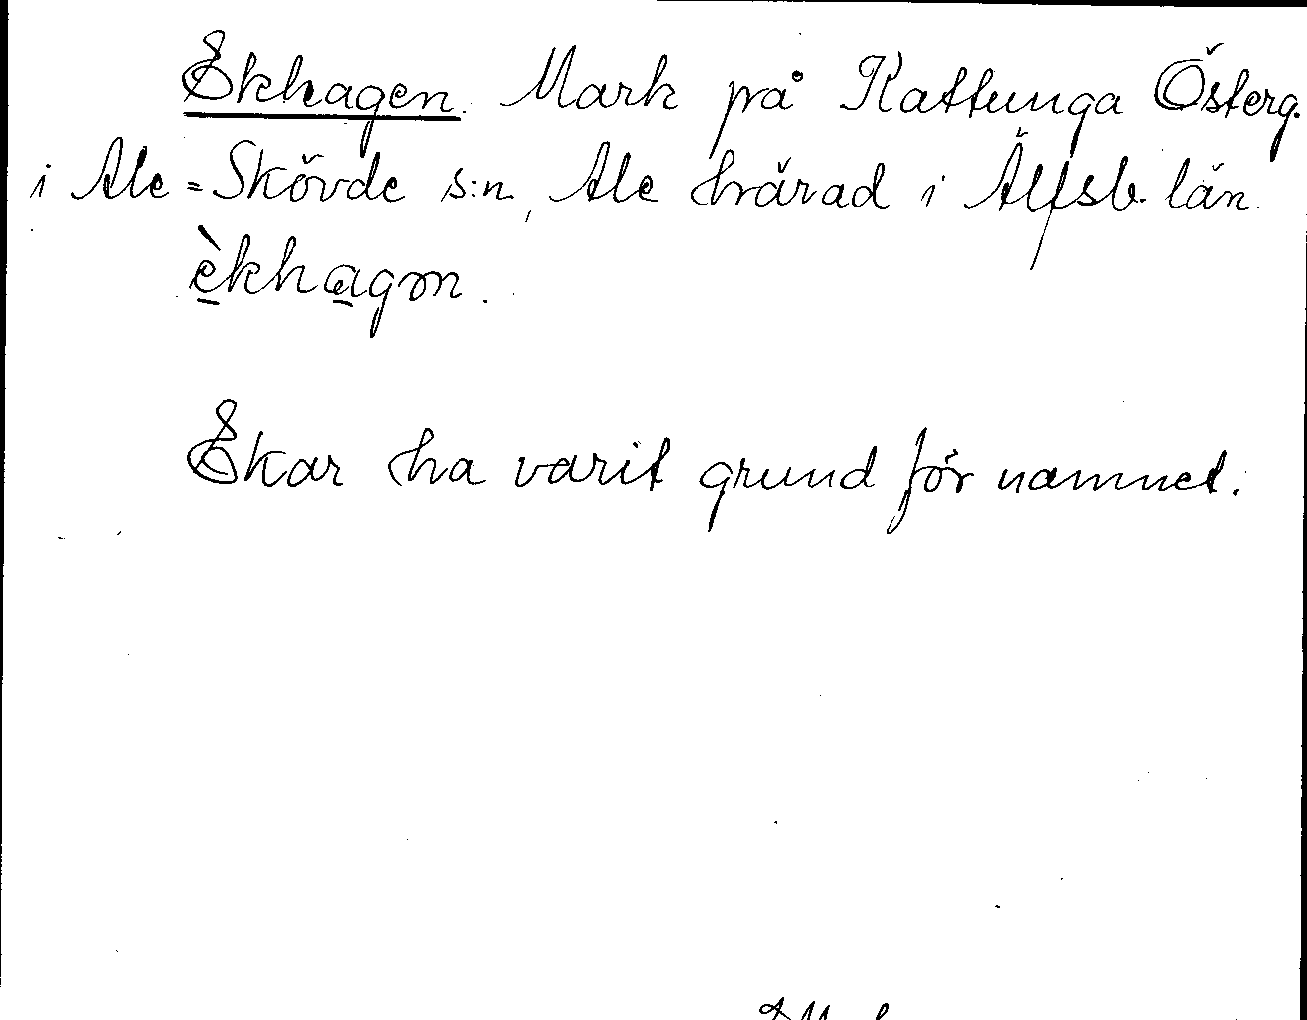 Ekhagen. Mark på Kattunga Österg.
i Ale=Skövde s:n, Ale härad i Älfsb. län
è̱kha̱gən.
Ekar ha varit grund för namnet.